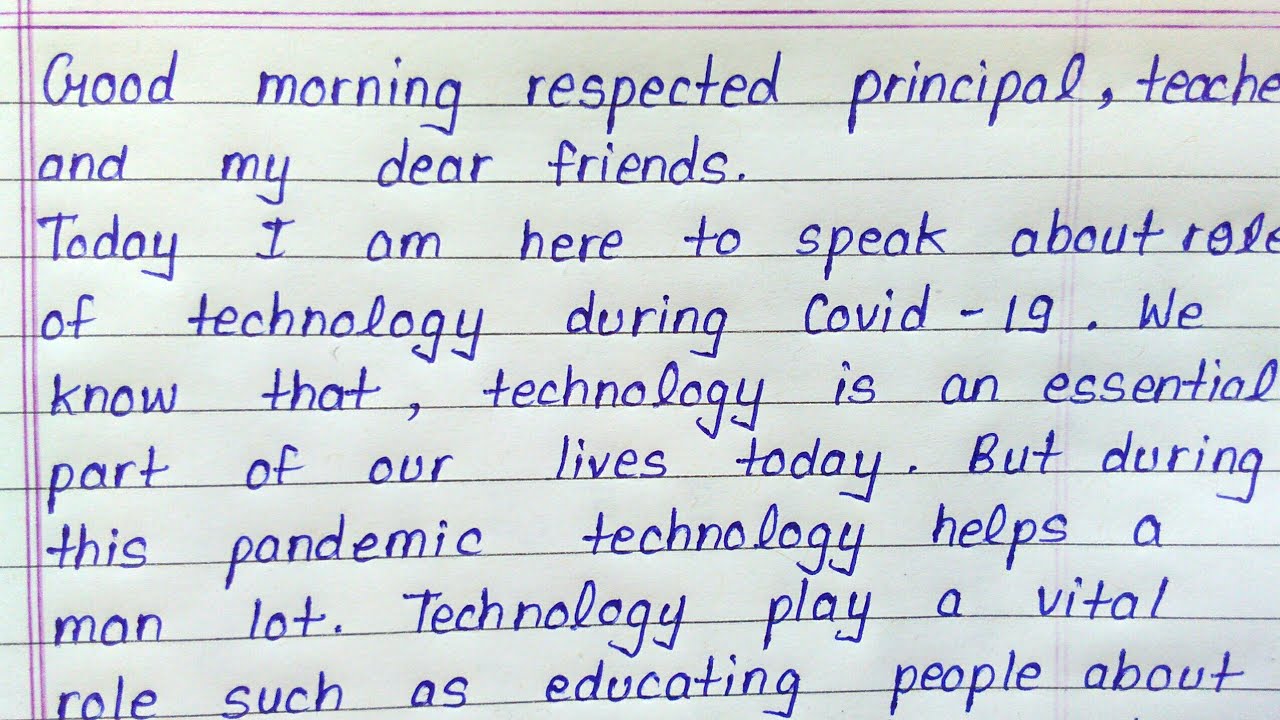 Good morning respected principal, teache
and my dear friends.
Today I am here to speak about role
of technology during Covid-19. We
know that, technology is an essential
part of our lives today. But during
this pandemic technology helps a
man lot. Technology play a vital
role such as educating people about